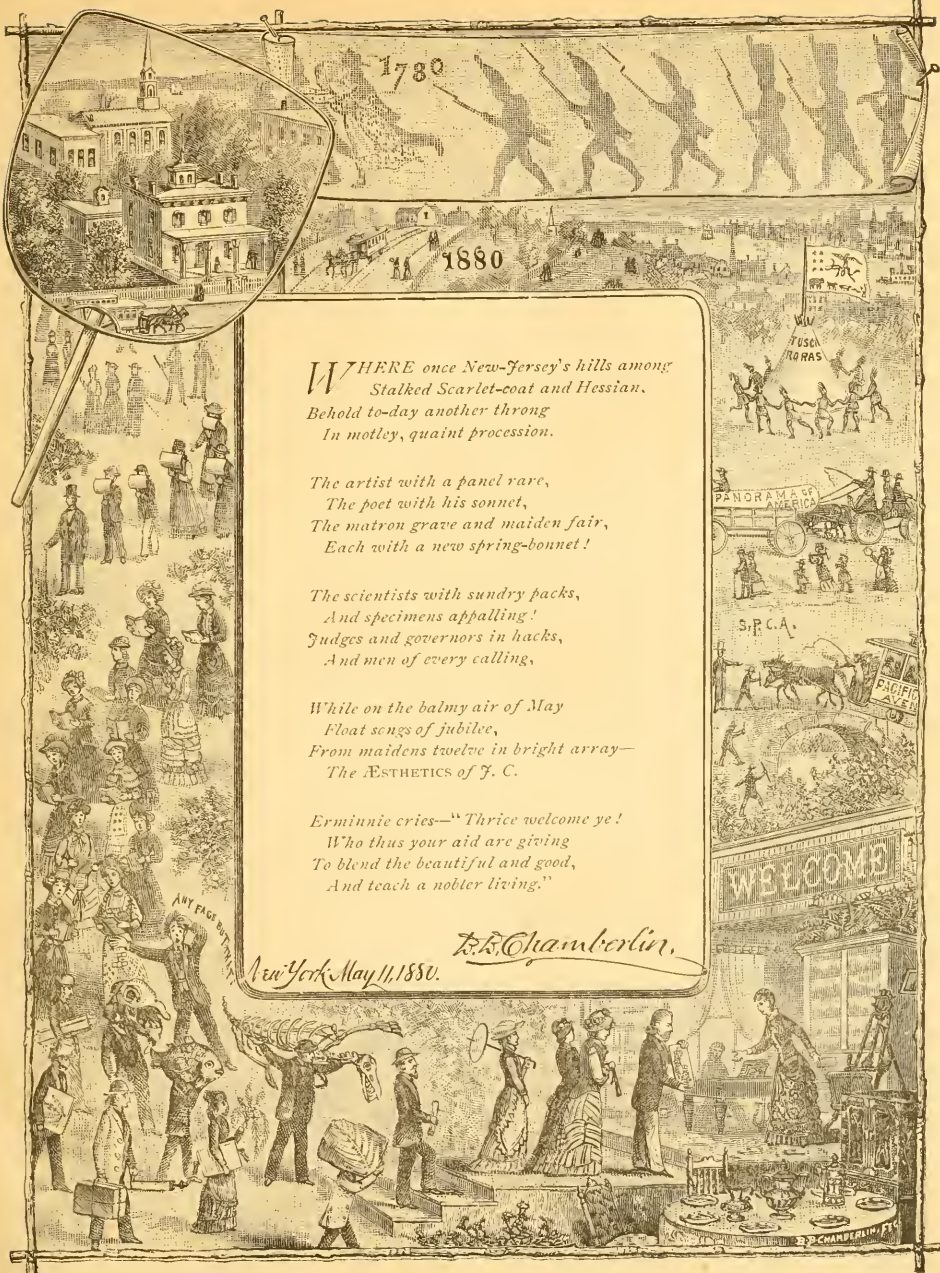 1780
1880
TUSCA
RORAS
WHERE once New-Jersey's hills among
Stalked Scarlet-coat and Hessian,
Behold to-day another throng
In motley, quaint procession.
The artist with a panel rare,
The poet with his sonnet,
The matron grave and maiden fair,
Each with a new spring-bonnet!
The scientists with sundry packs,
And specimens appalling!
Judges and governors in hacks,
And men of every calling,
While on the balmy air of May
Float songs of jubilee,
From maidens twelve in bright array—
The ÆSTHETICS of J. C.
Erminnie cries—“Thrice welcome ye!
Who thus your aid are giving
To blend the beautiful and good,
And teach a nobler living.”
B. B. Chamberlin.
New York May 11, 1880.
PANORAMA OF
AMERICA
S.P.C.A.
PACIFIC
AVEN
WELCOME
ANY FACE BUT THAT!
B B CHAMBERLIN, FEC